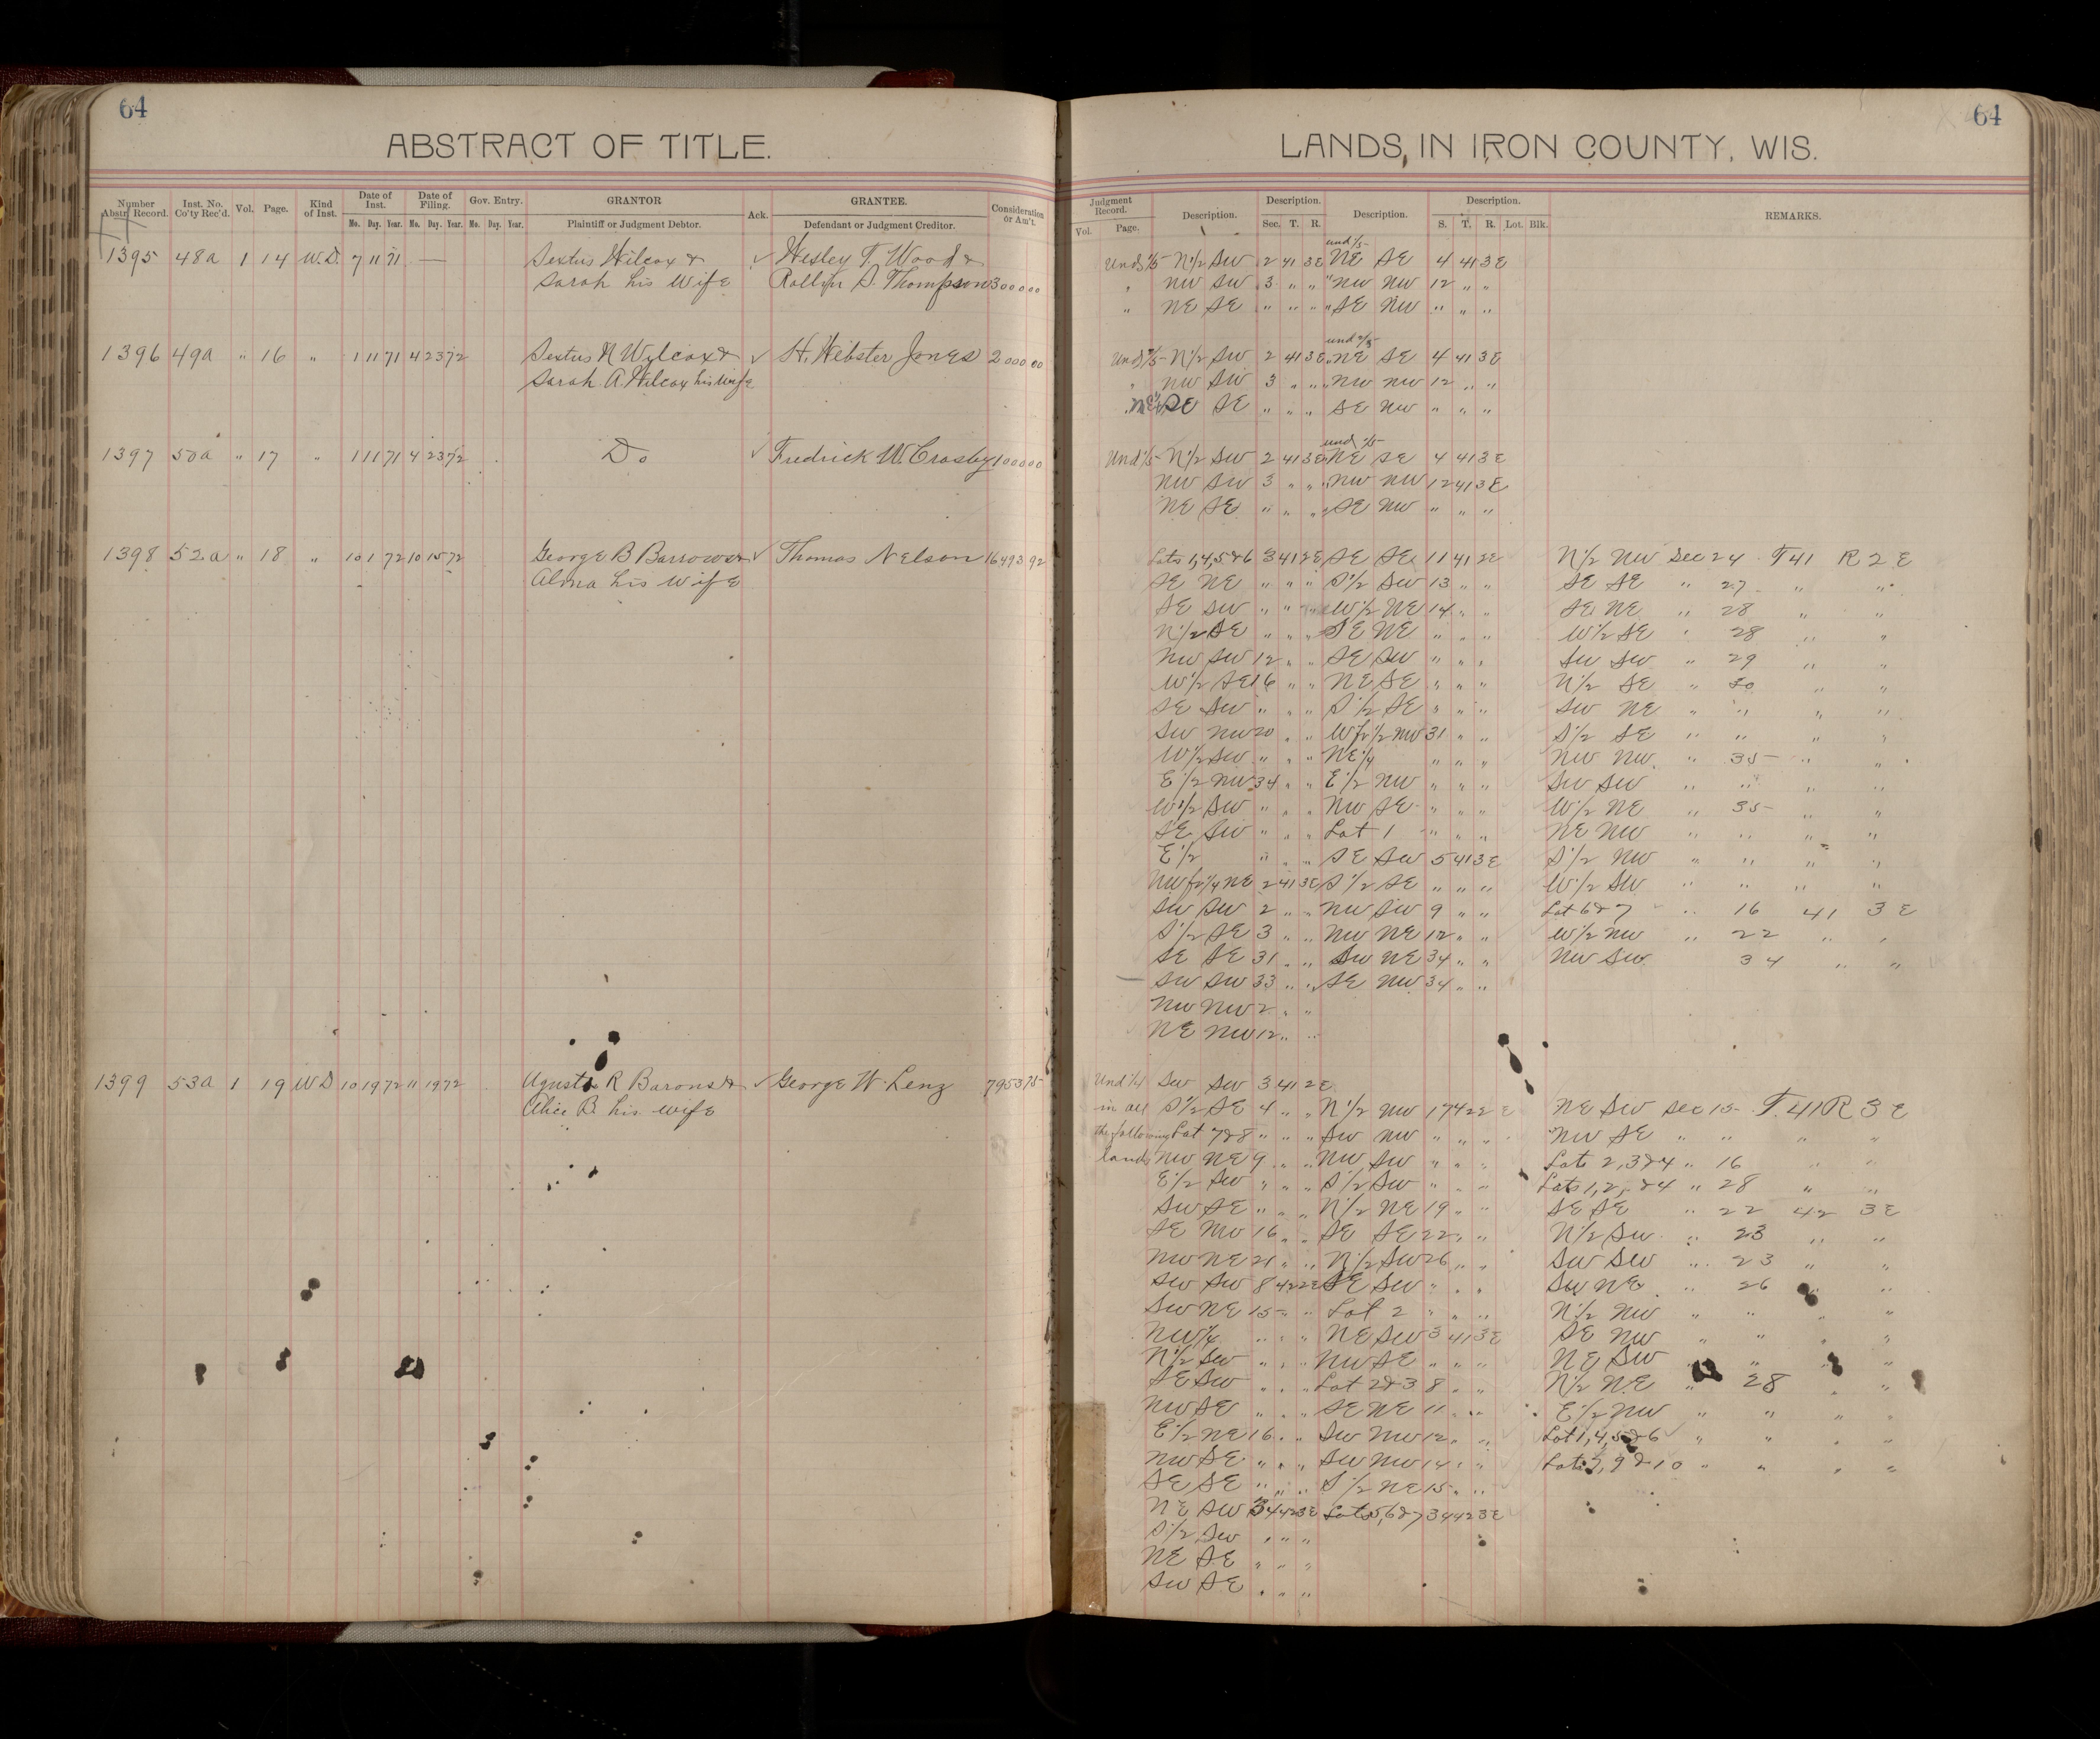 64
ABSTRACT OF TITLE.
Number Abstr. Record. Inst. No. Co'ty Rec'd. Vol. Page. Kind of Inst. Date of Inst. Date of Filing. Gov. Entry. GRANTOR Ack. GRANTEE. Consideration or Am't.
Mo. Day. Year. Mo. Day. Year. Mo. Day. Year. Plaintiff or Judgment Debtor. Defendant or Judgment Creditor.
1395 48a 1 14 W.D. 7 11 71 — Sextus Wilcox & ✓ Wesley T. Wood &
Sarah his Wife Rollin S. Thompson 3000 00
1396 49a " 16 " 1 11 71 4 23 72 Sextus N Wylcox & ✓ H. Webster Jones 2000 00
Sarah A. Wilcox his wife
1397 50a " 17 " 1 11 71 4 23 72 Do ✓ Fredrick W. Crosby 1000 00
1398 52a " 18 " 10 1 72 10 15 72 George B Barrows & ✓ Thomas Nelson 16493 92
Alma his wife
1399 53a 1 19 WD 10 19 72 11 19 72 R Barons & ✓ George W. Lenz 7953 75
Alice B. his wife
64
LANDS IN IRON COUNTY, WIS.
Judgment Record. Description. Description. Description. Description. REMARKS.
Vol. Page. Sec. T. R. S. T. R. Lot. Blk.
und 1/5
Und 3/5 N1/2 SW 2 41 3E NE SE 4 41 3E
" NW SW 3 " " " NW NW 12 " "
" NE SE " " " " SE NW " " "
und 2/5
Und 2/5 N1/2 SW 2 41 3E NE SE 4 41 3E
" NW SW 3 " " " NW NW 12 " "
SE " " " SE NW " " "
und 1/5
Und 1/5 N1/2 SW 2 41 3E NE SE 4 41 3E
NW SW 3 " " " NW NW 12 41 3E
NE SE " " " " SE NW " " "
Lots 1,4,5&6 3 41 2E SE SE 11 41 2E N1/2 NW Sec 24 T41 R 2 E
SE NE " " " S1/2 SW 13 " " SE SE " 27 " "
SE SW " " " W1/2 NE 14 " " SE NE " 28 " "
N1/2 SE " " " SE NE " " " W1/2 SE " 28 " "
NW SW 12 " " SE SW " " " SW SW " 29 " "
W1/2 SE 16 " " NE SE " " " N1/2 SE " 30 " "
SE SW " " " S1/2 SE " " " SW NE " " " "
SW NW 20 " " W fr 1/2 NW 31 " " S1/2 SE " " " "
W1/2 SW " " " NE1/4 " " " NW NW " 35 " "
E1/2 NW 34 " " E1/2 NW " " " SW SW " " " "
W1/2 SW " " " NW SE " " " W1/2 NE " 35 " "
SE SW " " " Lot 1 " " " NE NW " " " "
E1/2 " " " SE SW 5 41 3E S1/2 NW " " " "
NW fr 1/4 NE 2 41 3E S1/2 SE " " " W1/2 SW " " " "
SW SW 2 " " NW SW 9 " " Lot 6&7 " 16 41 3 E
S1/2 SE 3 " " NW NE 12 " " W1/2 NW " 22 " "
SE SE 31 " " SW NE 34 " " NW SW 34 " "
SW SW 33 " " SE NW 34 " "
NW NW 2 " "
NE NW 12 " "
Und 1/4 SW SW 3 41 2E
in all S1/2 SE 4 " " N1/2 NW 17 42 2 E NE SW Sec 15 T. 41 R 3 E
the following Lot 7&8 " " " SW NW " " " NW SE " " " "
lands NW NE 9 " " NW SW " " " Lots 2,3&4 " 16 " "
E1/2 SW " " " S1/2 SW " " " Lots 1,2,&4 " 28 " "
SW SE " " " N1/2 NE 19 " " SE SE " 22 42 3E
SE NW 16 " " SE SE 22 " " N1/2 SW " 23 " "
NW NE 21 " " N1/2 SW 26 " " SW SW " 23 " "
SW SW 8 42 2E SE SW " " " SW NE " 26 " "
SW NE 15 " " Lot 2 " " " N1/2 NW " " " "
NW1/4 " " " NE SW 3 41 3E SE NW " " " "
N1/2 SW " " " NW SE " " " NE SW " " "
SE SW " " " Lot 2&3 8 " " N1/2 NE " 28 " "
NW SE " " " SE NE 11 " " E1/2 NW " " " "
E1/2 NE 16 " " SW NW 12 " " Lot 1,4,5&6 " " " "
NW SE " " " SW NW 14 " " Lots 9&10 " " " "
SE SE " " " S1/2 NE 15 " "
NE SW 34 42 3E Lots 5,6&7 34 42 3E
S1/2 SW " " "
NE SE " " "
SW SE " " "